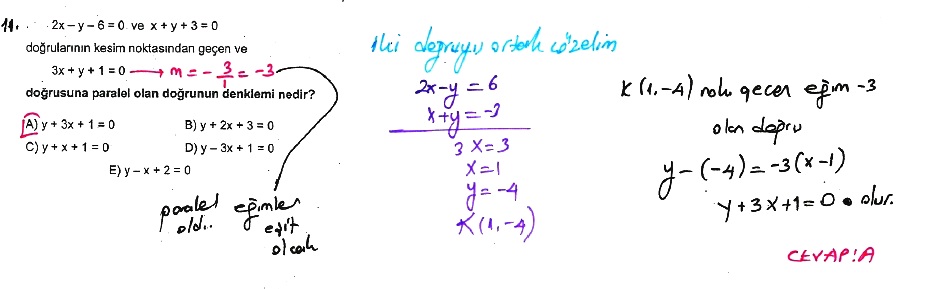 11. 2x – y – 6 = 0 ve x + y + 3 = 0
doğrularının kesim noktasından geçen ve
3x + y + 1 = 0 → m = - 3/1 = -3
doğrusuna paralel olan doğrunun denklemi nedir?
A) y + 3x + 1 = 0 B) y + 2x + 3 = 0
C) y + x + 1 = 0 D) y – 3x + 1 = 0
E) y – x + 2 = 0
paralel eğimler
old.. eşit
olcak
İki doğruyu ortak çözelim
2x-y = 6
x+y = -3
3x = 3
x = 1
y = -4
K(1,-4)
K(1,-4) nok geçen eğim -3
olan doğru
y - (-4) = -3(x-1)
y + 3x + 1 = 0 olur.
CEVAP: A